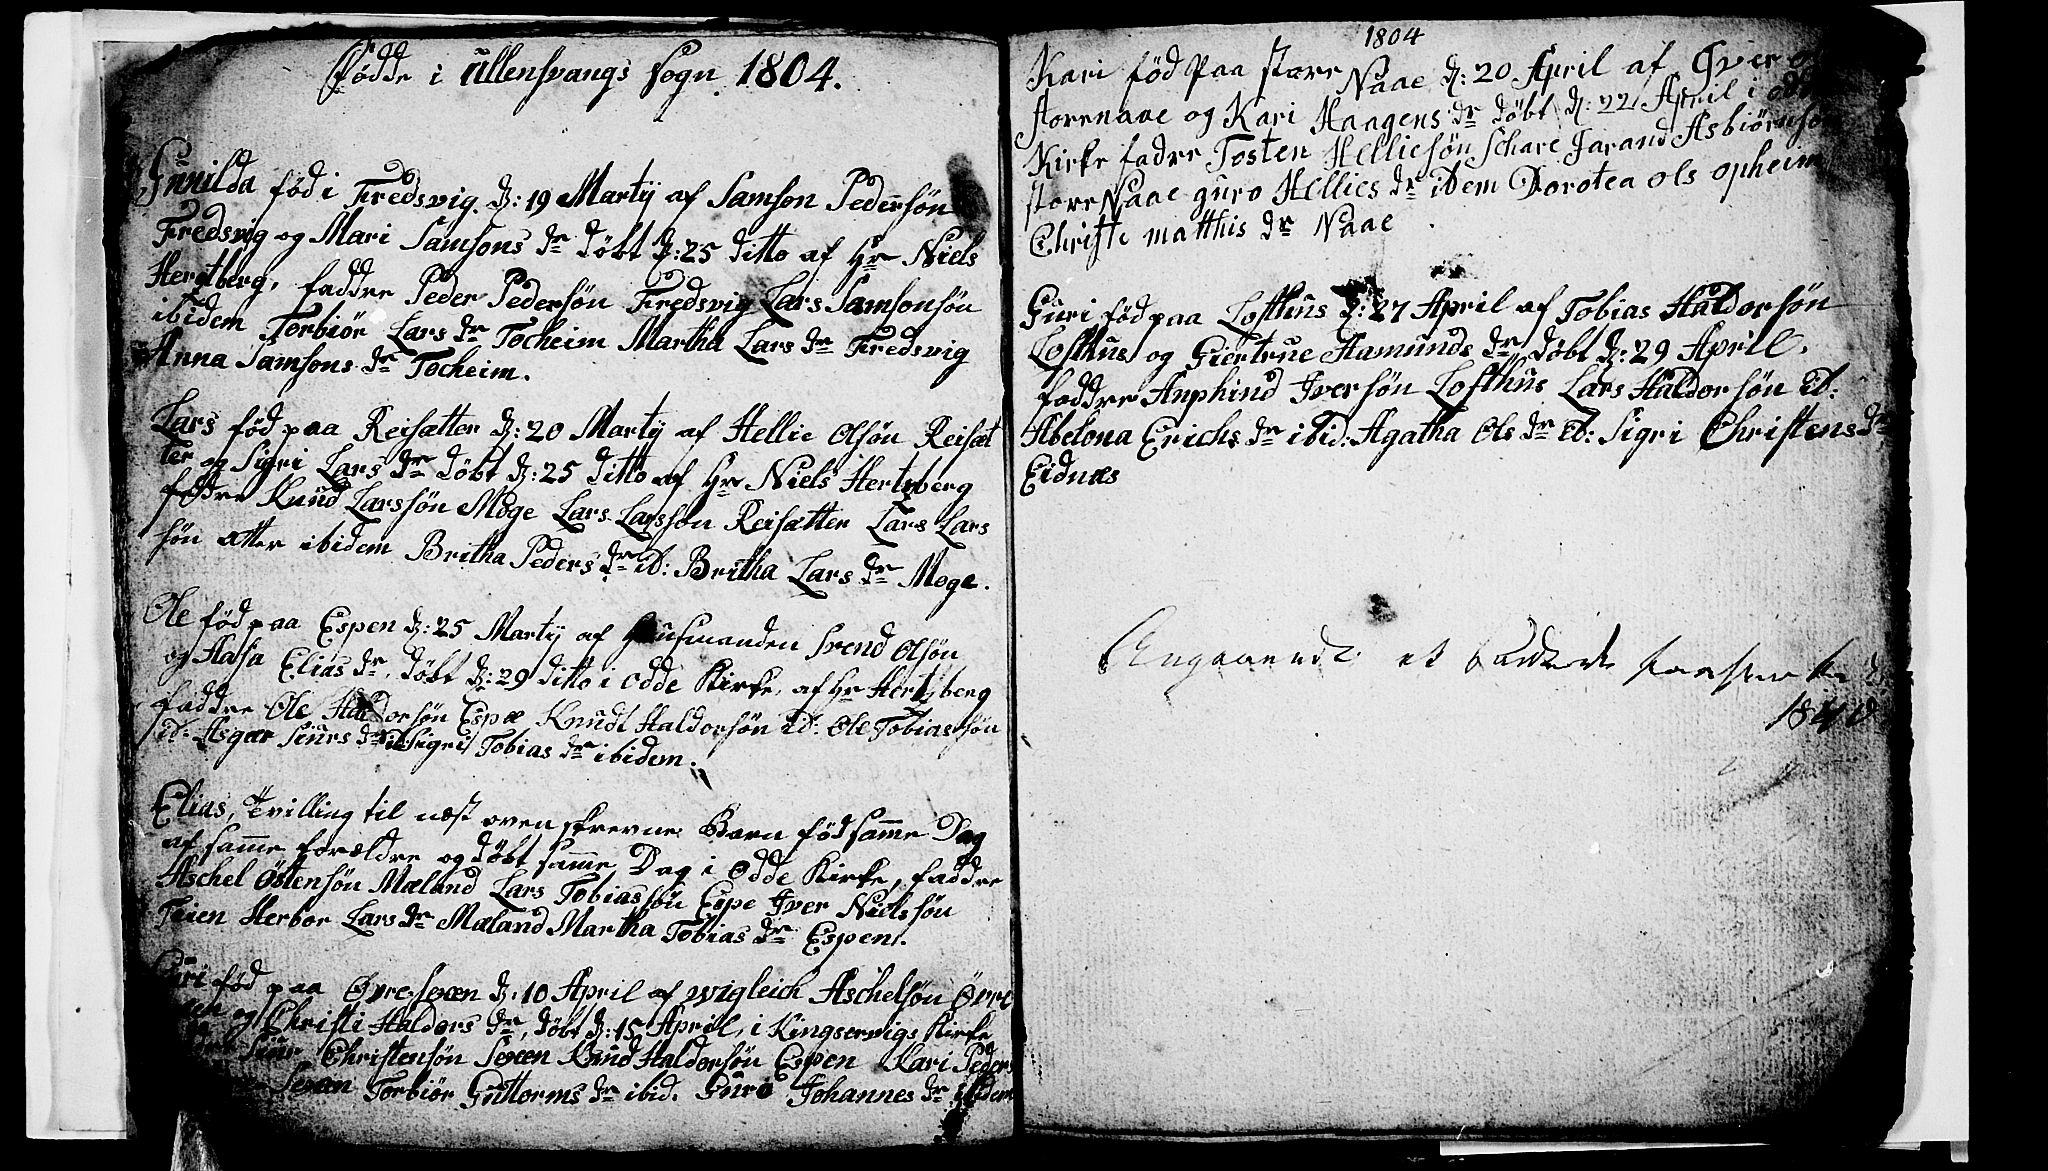 Fødde i Ullensvangs Sogn 1804.
Gunilda fød i Fredsvig d: 19 Martij af Samson Pedersøn
Fredsvig og Mari Samsons dr døbt d: 25 ditto af Hr Niels
Hertzberg, faddre Peder Pedersøn Fredsvig Lars Samsonsøn
ibidem Torbiør Lars dr Tocheim Martha Lars dr Fredsvig
Anna Samsons dr Tocheim.
Lars fød paa Reisætter d: 20 Martij af Hellie Olsøn Reisæt
ter og Sigri Lars dr døbt d: 25 ditto af Hr Niels Hertzberg
faddre Knud Larssøn Moge Lars Larssøn Reisætter Lars Lars
søn Ætter ibidem Britha Peders dr id: Britha Lars dr Moge.
Ole fød paa Espen d: 25 Martij af Huusmanden Svend Olsøn
og Aasa Elias dr, døbt d: 29 ditto i Odde Kirke, af Hr Hertzberg
faddre Ole Haldorsøn Espæ Knudt Haldorsøn id: Ole Tobiassøn
id: Asgær Siurs dr id: Sigri Tobias dr ibidem.
Elias, Tvilling til næst ovenskrevne Barn fød samme Dag
af samme forældre og døbt samme Dag i Odde Kirke, faddre
Aschel Østensøn Mæland Lars Tobiassøn Espe Iver Nielssøn
Teien Herbor Lars dr Mæland Martha Tobias dr Espen.
Guri fød paa Øvre Sexen d: 10 April af Wigleich Aschelsøn Øvre
og Christi Haldors dr, døbt d: 15 April, i Kingservigs Kirke
Siur Christensøn Sexen Knud Haldorsøn Espen Kari Peders
Sexen Torbiør Guttorms dr ibid. Guro Johannes dr ibidem
1804
Kari fød paa store Naae d: 20 April af Iver
storenaae og Kari Haagens dr døbt d: 22 April i Odde
Kirke fadre Tosten Helliesøn Schare Jarand Asbiørnsøn
store Naae guro Hellies dr idem Dorotea Ols opheim
Christi matthis dr Naae
Guri fød paa Lofthus d: 27 April af Tobias Haldorsøn
Lofthus og Giertrue Aamunds dr døbt d: 29 April.
faddre Anphind Iversøn Lofthus Lars Haldorsøn id:
Abelona Erichs dr ibid: Agatha Ols dr id: Sigri Christens dr
Eidnæs
Angaaende et
1840